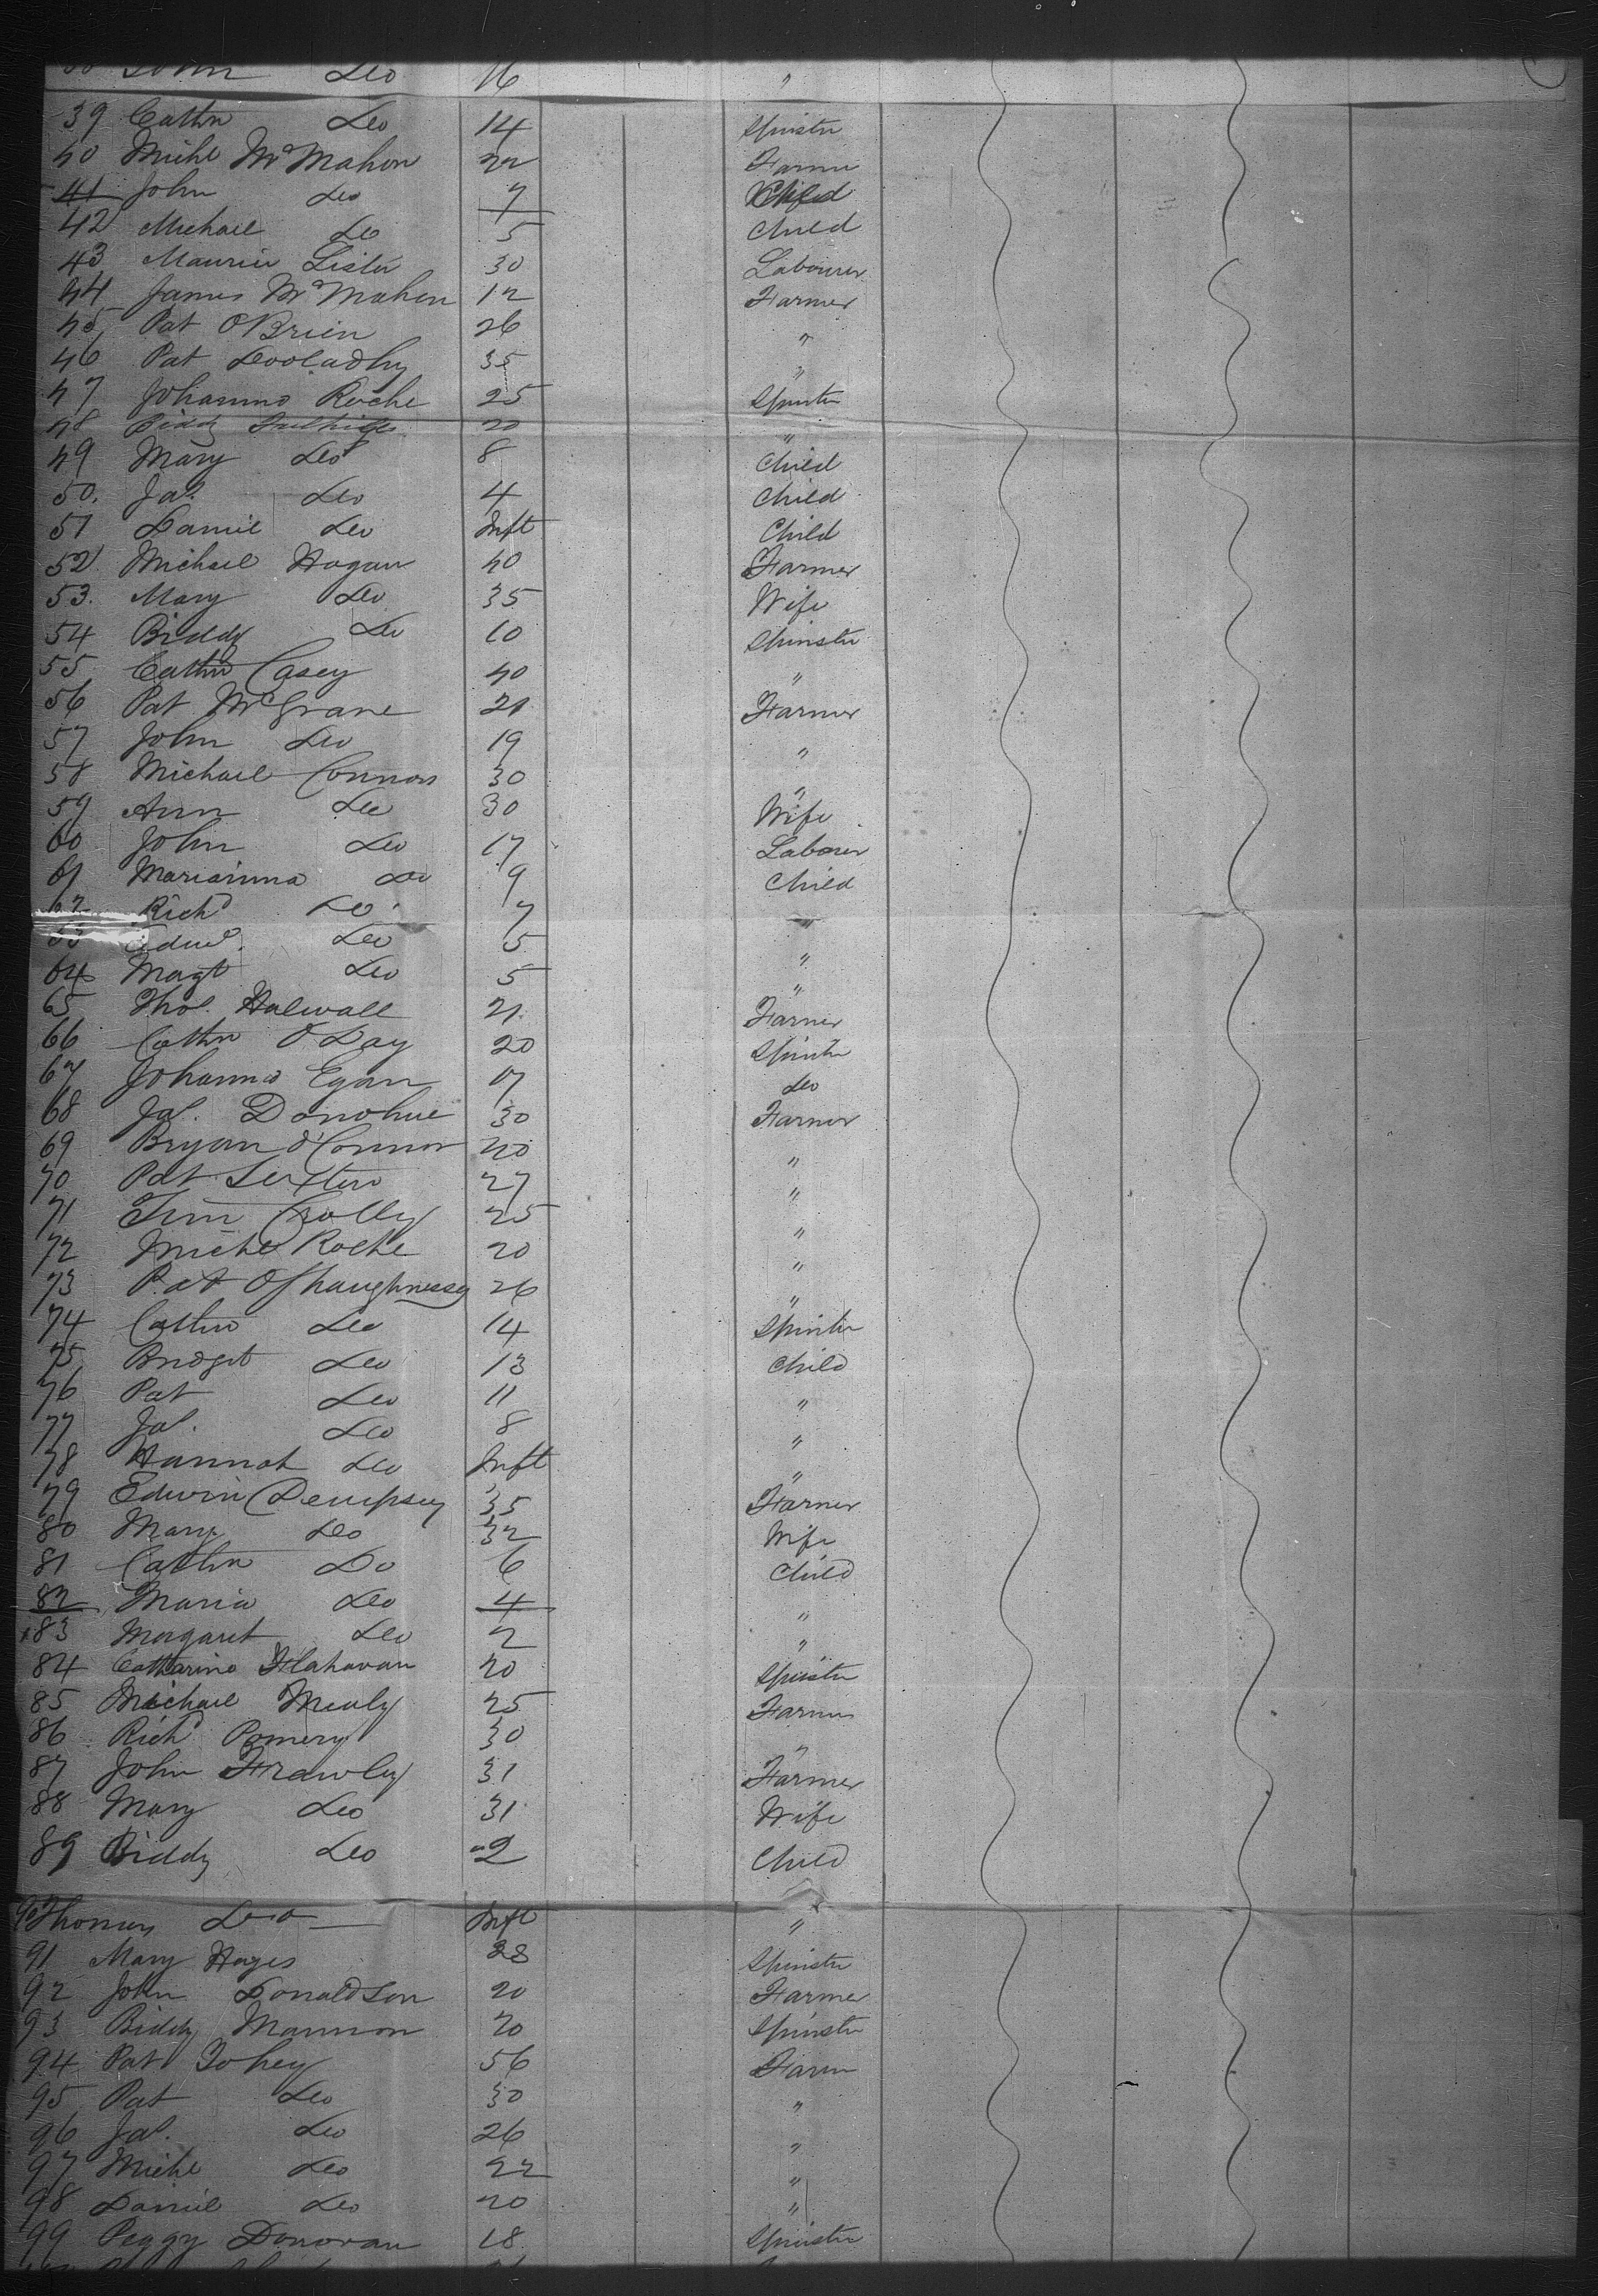 John Do 16 "
39 Cathn Do 14 Spinster
40 Michl McMahon 22 Farmer
41 John Do 7 Child
42 Michael Do 5 Child
43 Maurice Lister 30 Labourer
44 James McMahon 12 Farmer
45 Pat OBrien 26 "
46 Pat 35 "
47 Johanna Roche 25 Spinster
48 Biddy 20 "
49 Mary Do 8 Child
50. Jas. Do 4 Child
51 Daniel Do Inft Child
52 Michael Hogan 40 Farmer
53. Mary Do 35 Wife
54 Biddy Do 10 Spinster
55 Cathn Casey 40 "
56 Pat McGrane 21 Farmer
57 John Do 19 "
58 Michael Connors 30 "
59 Ann Do 30 Wife
60 John Do 17 Laborer
61 Marianna Do 9 Child
62 Richd Do 7 "
Edwd. Do 5 "
64 Magt Do 5 "
65 Thos. Halwall 21 Farmer
66 Cathn O Day 20 Spinster
67 Johanna Egan 17 Do
68 Jas. Donohue 30 Farmer
69 Bryan O'Connor 20 "
70 Pat Sexton 27 "
71 Tim Crolly 25 "
72 Michl Roche 20 "
73 Pat OShaughnessy 26 "
74 Cathn Do 14 Spinster
75 Bridget Do 13 Child
76 Pat Do 11 "
77 Jas. Do 8 "
78 Hannah Do Inft "
79 Edwin Dempsey 35 Farmer
80 Mary Do 32 Wife
81 Cathn Do 6 Child
82 Maria Do 4 "
83 Margaret Do 2 "
84 Catharine Flahavan 20 Spinster
85 Michael Mealy 25 Farmer
86 Richd Pomery 30 "
87 John Frawley 31 Farmer
88 Mary Do 31 Wife
89 Biddy Do 2 Child
90 Thomas Do Inft "
91 Mary Hayes 28 Spinster
92 John Donaldson 20 Farmer
93 Biddy Mannion 20 Spinster
94 Pat Tohey 56 Farmer
95 Pat Do 30 "
96 Jas. Do 26 "
97 Michl Do 22 "
98 Daniel Do 20 "
99 Peggy Donovan 18 Spinster